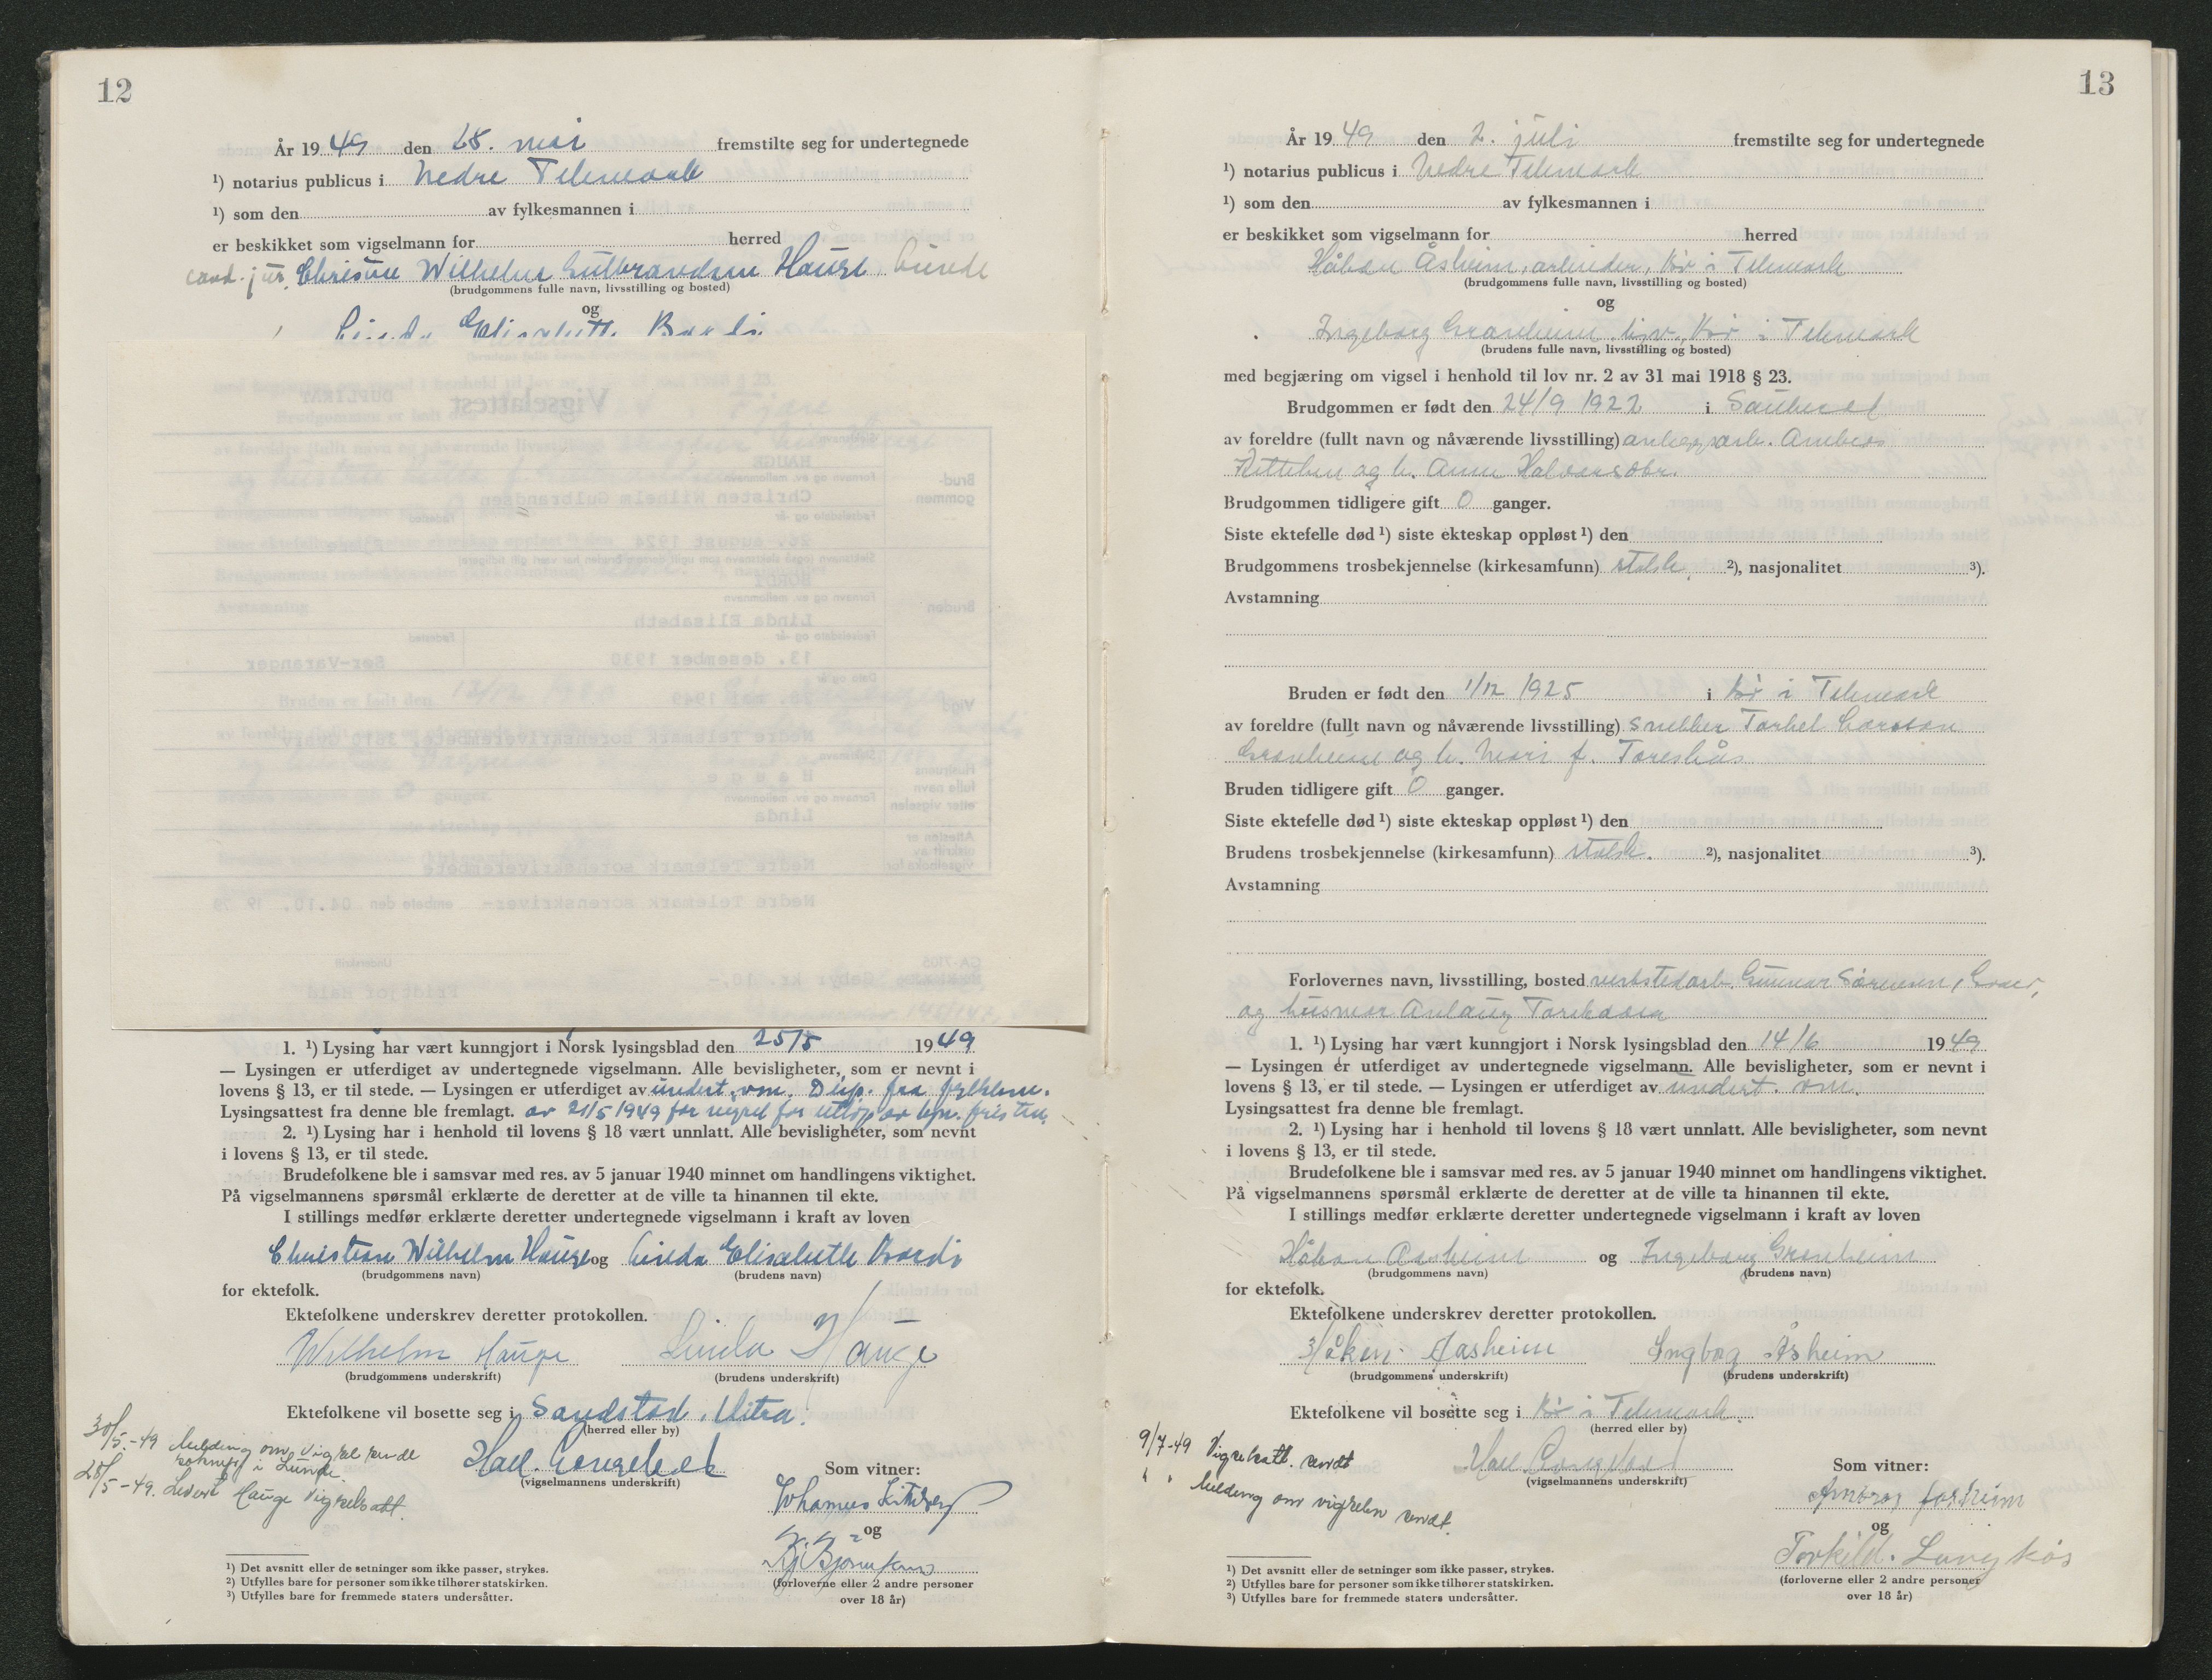 12
År 19 49 den 28. mai fremstilte seg for undertegnede
¹) notarius publicus i Nedre Telemark
¹) som den av fylkesmannen i
er beskikket som vigselmann for herred
cand. jur. Christen Wilhelm Gulbrandsen Hauge, Lunde
(brudgommens fulle navn, livsstilling og bosted)
og
Linda Elisabeth Bordi
1. ¹) Lysing har vært kunngjort i Norsk lysingsblad den 25/5 1949
— Lysingen er utferdiget av undertegnede vigselmann. Alle bevisligheter, som er nevnt i
lovens § 13, er til stede. — Lysingen er utferdiget av undert. vm. Disp. fra fylkesm.
Lysingsattest fra denne ble fremlagt. av 21/5 1949 for vigsel før utløp av lysn. fristen.
2. ¹) Lysing har i henhold til lovens § 18 vært unnlatt. Alle bevisligheter, som nevnt
i lovens § 13, er til stede.
Brudefolkene ble i samsvar med res. av 5 januar 1940 minnet om handlingens viktighet.
På vigselmannens spørsmål erklærte de deretter at de ville ta hinannen til ekte.
I stillings medfør erklærte deretter undertegnede vigselmann i kraft av loven
Christen Wilhelm Hauge og Linda Elisabeth Bordi
(brudgommens navn) (brudens navn)
for ektefolk.
Ektefolkene underskrev deretter protokollen.
Wilhelm Hauge Linda Hauge
(brudgommens underskrift) (brudens underskrift)
Ektefolkene vil bosette seg i Sandstad, Hitra.
(herred eller by)
30/5-49 Melding om vigsel sendt
soknepr. i Lunde.
28/5-49. Levert Hauge vigselsatt.
(vigselmannens underskrift)
Som vitner:
Johannes
og
(forloverne eller 2 andre personer
over 18 år)
¹) Det avsnitt eller de setninger som ikke passer, strykes.
²) Utfylles bare for personer som ikke tilhører statskirken.
³) Utfylles bare for fremmede staters undersåtter.
13
År 19 49 den 2. juli fremstilte seg for undertegnede
¹) notarius publicus i Nedre Telemark
¹) som den av fylkesmannen i
er beskikket som vigselmann for herred
Håkon Åsheim, arbeider, Bø i Telemark
(brudgommens fulle navn, livsstilling og bosted)
og
Ingeborg Grønheim, Bø i Telemark
(brudens fulle navn, livsstilling og bosted)
med begjæring om vigsel i henhold til lov nr. 2 av 31 mai 1918 § 23.
Brudgommen er født den 24/9 1922 i Sauherad
av foreldre (fullt navn og nåværende livsstilling) anleggsarb. Ambros
og h. Anne Halvorsdtr.
Brudgommen tidligere gift 0 ganger.
Siste ektefelle død ¹) siste ekteskap oppløst ¹) den
Brudgommens trosbekjennelse (kirkesamfunn) statsk. ²), nasjonalitet ³).
Avstamning
Bruden er født den 1/12 1925 i Bø i Telemark
av foreldre (fullt navn og nåværende livsstilling) snekker Torkel Larsson
Grønheim og h. Mari f. Toreskås
Bruden tidligere gift 0 ganger.
Siste ektefelle død ¹) siste ekteskap oppløst ¹) den
Brudens trosbekjennelse (kirkesamfunn) statsk. ²), nasjonalitet ³).
Avstamning
Forlovernes navn, livsstilling, bosted verkstedarb. Gunnar Sørensen,
og husmor Aslaug
1. ¹) Lysing har vært kunngjort i Norsk lysingsblad den 14/6 1949
— Lysingen er utferdiget av undertegnede vigselmann. Alle bevisligheter, som er nevnt i
lovens § 13, er til stede. — Lysingen er utferdiget av undert. vm.
Lysingsattest fra denne ble fremlagt.
2. ¹) Lysing har i henhold til lovens § 18 vært unnlatt. Alle bevisligheter, som nevnt
i lovens § 13, er til stede.
Brudefolkene ble i samsvar med res. av 5 januar 1940 minnet om handlingens viktighet.
På vigselmannens spørsmål erklærte de deretter at de ville ta hinannen til ekte.
I stillings medfør erklærte deretter undertegnede vigselmann i kraft av loven
Håkon Aasheim og Ingeborg Grønheim
(brudgommens navn) (brudens navn)
for ektefolk.
Ektefolkene underskrev deretter protokollen.
Håkon Aasheim Ingbog Åsheim
(brudgommens underskrift) (brudens underskrift)
Ektefolkene vil bosette seg i Bø i Telemark.
(herred eller by)
9/7-49 Vigselsatt. sendt
" " Melding om vigselen sendt.
(vigselmannens underskrift)
Som vitner:
Ambros Aasheim
og
Torkild Langkås
(forloverne eller 2 andre personer
over 18 år)
¹) Det avsnitt eller de setninger som ikke passer, strykes.
²) Utfylles bare for personer som ikke tilhører statskirken.
³) Utfylles bare for fremmede staters undersåtter.